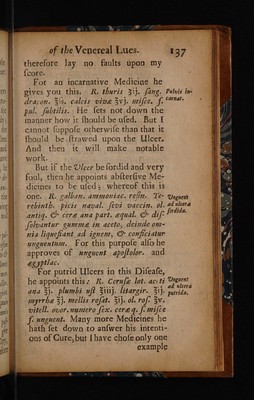 of the Venereal Lues. 137
therefore lay no faults upon my
score.
For an incarnative Medicine he
gives you this. R. thuris ʒij. sang. Pulvis in-
dracon. ʒß. calcis vivæ ʒvj. misce, f. carnat.
pul. subtilis. He sets not down the
manner how it should be used. But I
cannot suppose otherwise than that it
should be strawed upon the Ulcer.
And then it will make notable
work.
But if the Ulcer be sordid and very
foul, then he appoints abstersive Me-
dicines to be used; whereof this is
one. R. galban. ammoniac. resin. Te- Unguent
rebinth. picis naval. sevi vaccin. ol. ad ulcera
antiq. & ceræ ana part. æqual. & dis- sordida.
solvantur gummæ in aceto, deinde om-
nia liquefiant ad ignem, & conficiatur
unguentum. For this purpose also he
approves of unguent apostolor. and
ægyptiac.
For putrid Ulcers in this Disease,
he appoints this: R. Cerusæ lot. aceti Unguent
ana ʒj. plumbi ust ʒiiij. litargir. ʒij. ad ulcera
myrrhæ ʒj. mellis rosat. ʒij. ol. ros. ʒv. putrida.
vitell. ovor. numero six. ceræ q. s. misce
f. unguent. Many more Medicines he
hath set down to answer his intenti-
ons of Cure, but I have chose only one
example